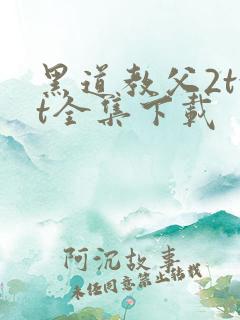 黑道教父2tx
t全集下载
阿沉故事
未经同意禁止转载